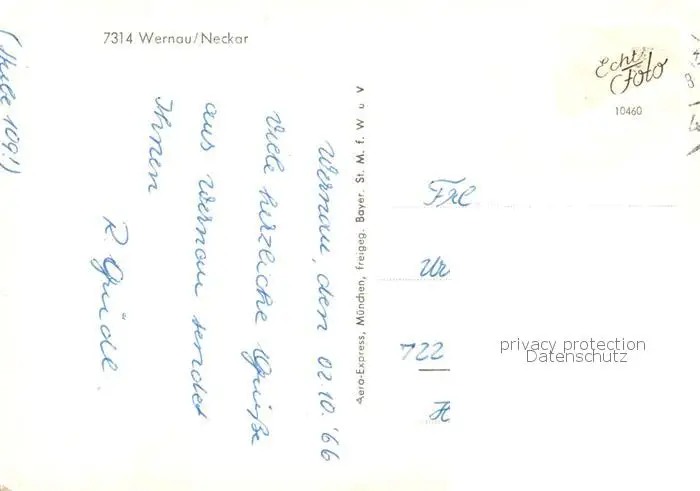 7314 Wernau/Neckar
Wernau, den 02.10.'66
Viele herzliche Grüße
aus Wernau sendet
Ihnen
R.
109!)
Aero-Express, München, freigeg. Bayer. St. M. f. W u V
Echt
Foto
10460
Frl
Ur
722
H
privacy protection
Datenschutz